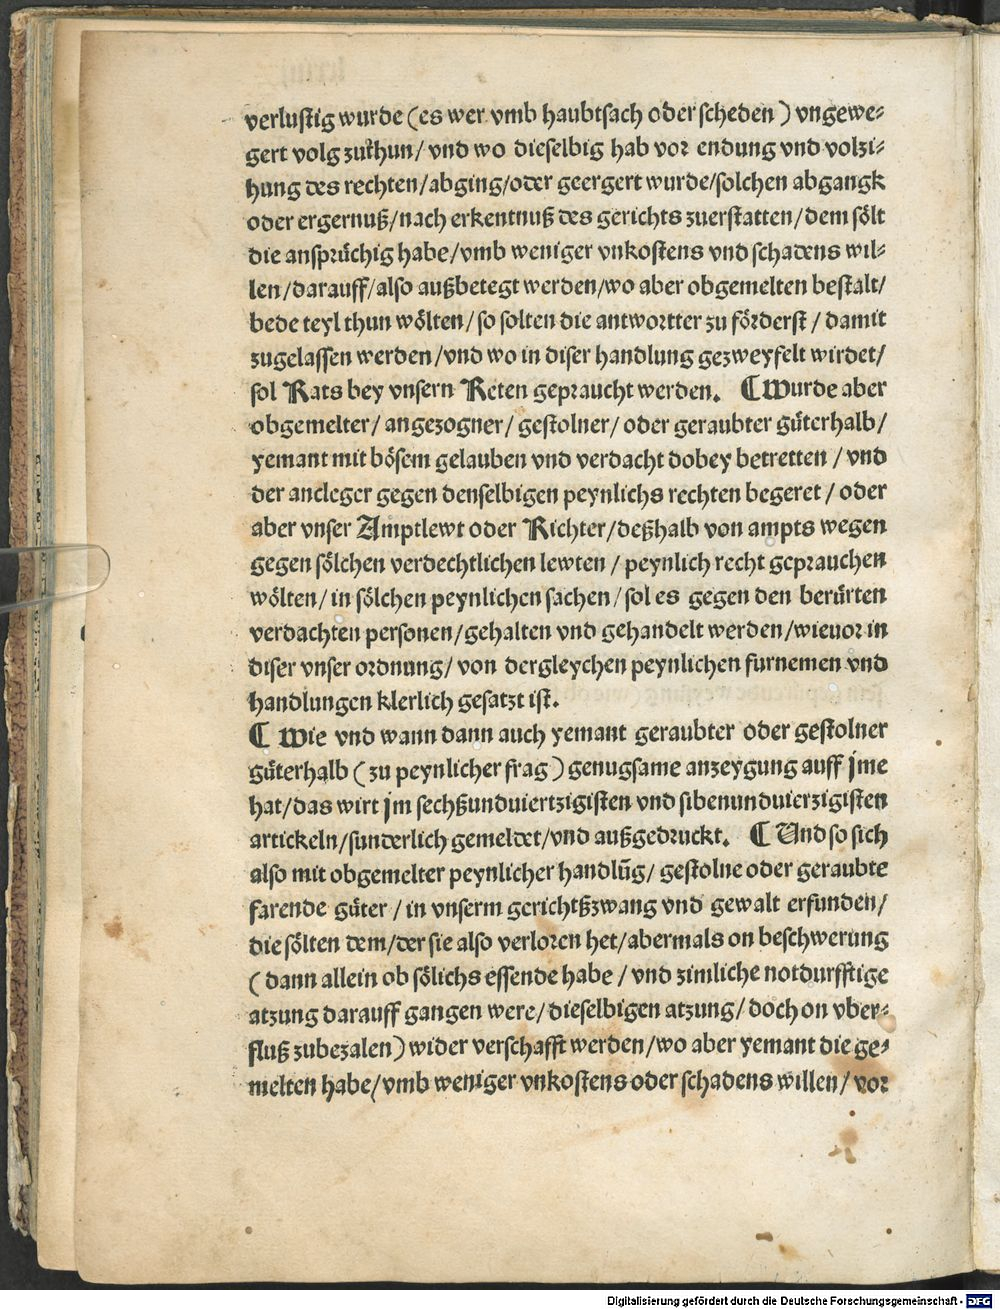 verlustig wurde (es wer vmb haubtsach oder scheden) vngewe-
gert volg zuthun/ vnd wo dieselbig hab vor endung vnd volzi-
hung des rechten/abging/oder geergert wurde/solchen abgangk
oder ergernuß/nach erkentnuß des gerichts zuerstatten/dem sölt
die ansprüchig habe/vmb weniger vnkostens vnd schadens wil-
len/darauff/also außbetegt werden/wo aber obgemelten bestalt/
bede teyl thun wölten/so solten die antwortter zu förderst/damit
zugelassen werden/vnd wo in diser handlung gezweyfelt wirdet/
sol Rats bey vnsern Reten gepraucht werden. ⸿Wurde aber
obgemelter/angezogner/gestolner/oder geraubter güterhalb/
yemant mit bösem gelauben vnd verdacht dobey betretten/vnd
der ancleger gegen denselbigen peynlichs rechten begeret/oder
aber vnser Amptlewt oder Richter/deßhalb von ampts wegen
gegen sölchen verdechtlichen lewten/peynlich recht geprauchen
wölten/in sölchen peynlichen sachen/sol es gegen den berürten
verdachten personen/gehalten vnd gehandelt werden/wieuor in
diser vnser ordnung/von dergleychen peynlichen furnemen vnd
handlungen klerlich gesatzt ist.
⸿ Wie vnd wann dann auch yemant geraubter oder gestolner
güterhalb (zu peynlicher frag) genugsame anzeygung auff jme
hat/das wirt jm sechßunduiertzigisten vnd sibenunduierzigisten
artickeln/sunderlich gemeldet/vnd außgedruckt. ⸿ Und so sich
also mit obgemelter peynlicher handlūg/gestolne oder geraubte
farende güter/in vnserm gerichtßzwang vnd gewalt erfunden/
die sölten dem/der sie also verloren het/abermals on beschwerung
(dann allein ob sölichs essende habe/vnd zimliche notdurfftige
atzung darauff gangen were/dieselbigen atzung/doch on vber-
fluß zubezalen) wider verschafft werden/wo aber yemant die ge-
melten habe/vmb weniger vnkostens oder schadens willen/vor
Digitalisierung gefördert durch die Deutsche Forschungsgemeinschaft - DFG